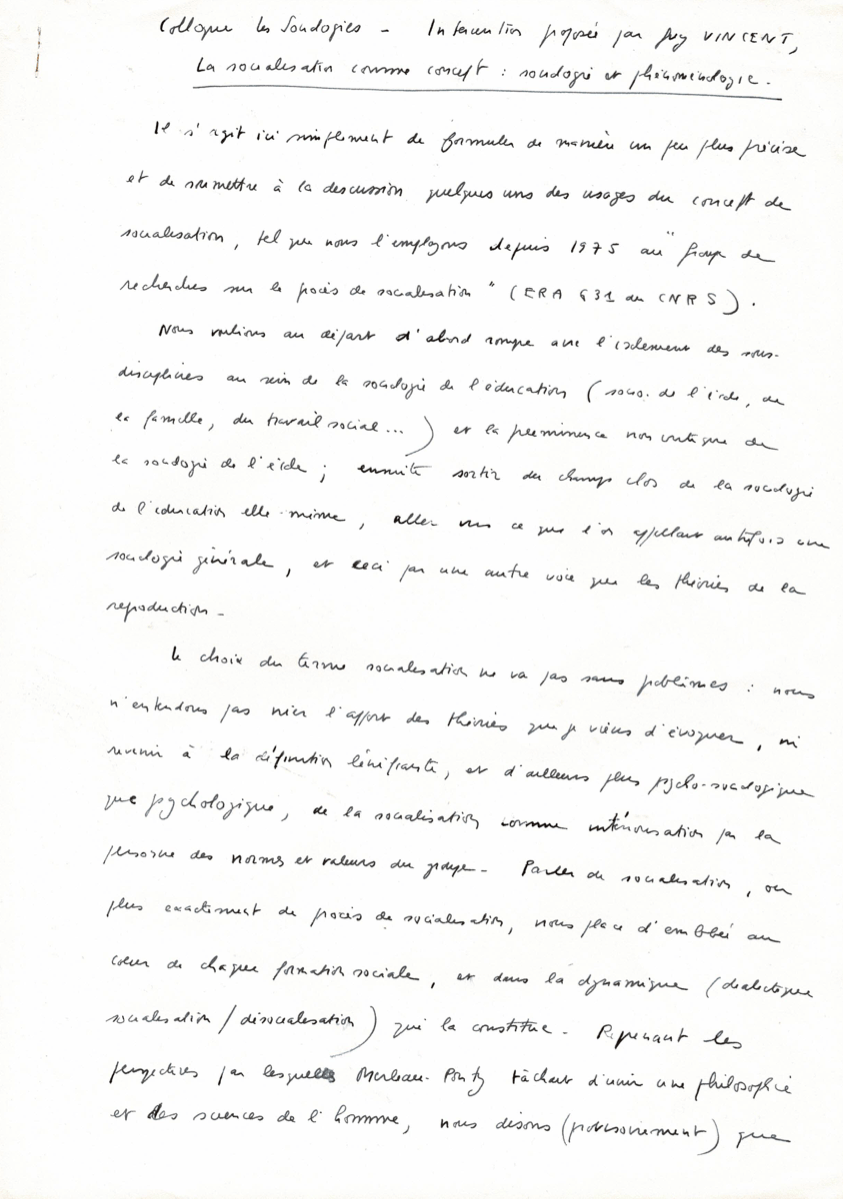 Colloque les Sociologies - Intervention proposée par Guy VINCENT,
La socialisation comme concept : sociologie et phénoménologie.
Il s'agit ici simplement de formuler de manière un peu plus précise
et de soumettre à la discussion quelques uns des usages du concept de
socialisation, tel que nous l'employons depuis 1975 au "Groupe de
recherches sur le procès de socialisation" (ERA 631 du CNRS).
Nous voulions au départ d'abord rompre avec l'isolement des sous-
disciplines au sein de la sociologie de l'éducation (socio. de l'école, de
la famille, du travail social...) et la préeminence non critique de
la sociologie de l'école ; ensuite sortir du champ clos de la sociologie
de l'éducation elle-même, aller vers ce que l'on appelait autrefois une
sociologie générale, et ceci par une autre voie que les théories de la
reproduction -
Le choix du terme socialisation ne va pas sans problèmes : nous
n'entendons pas nier l'apport des théories que je viens d'évoquer, ni
revenir à la définition lénifiante, et d'ailleurs plus psycho-sociologique
que psychologique, de la socialisation comme intériorisation par la
personne des normes et valeurs du groupe - Parler de socialisation, ou
plus exactement de procès de socialisation, nous place d'emblée au
coeur de chaque formation sociale, et dans la dynamique (dialectique
socialisation / désocialisation) qui la constitue - Reprenant les
perspectives par lesquelles Merleau-Ponty tâchait d'unir une philosophie
et des sciences de l'homme, nous disons (provisoirement) que